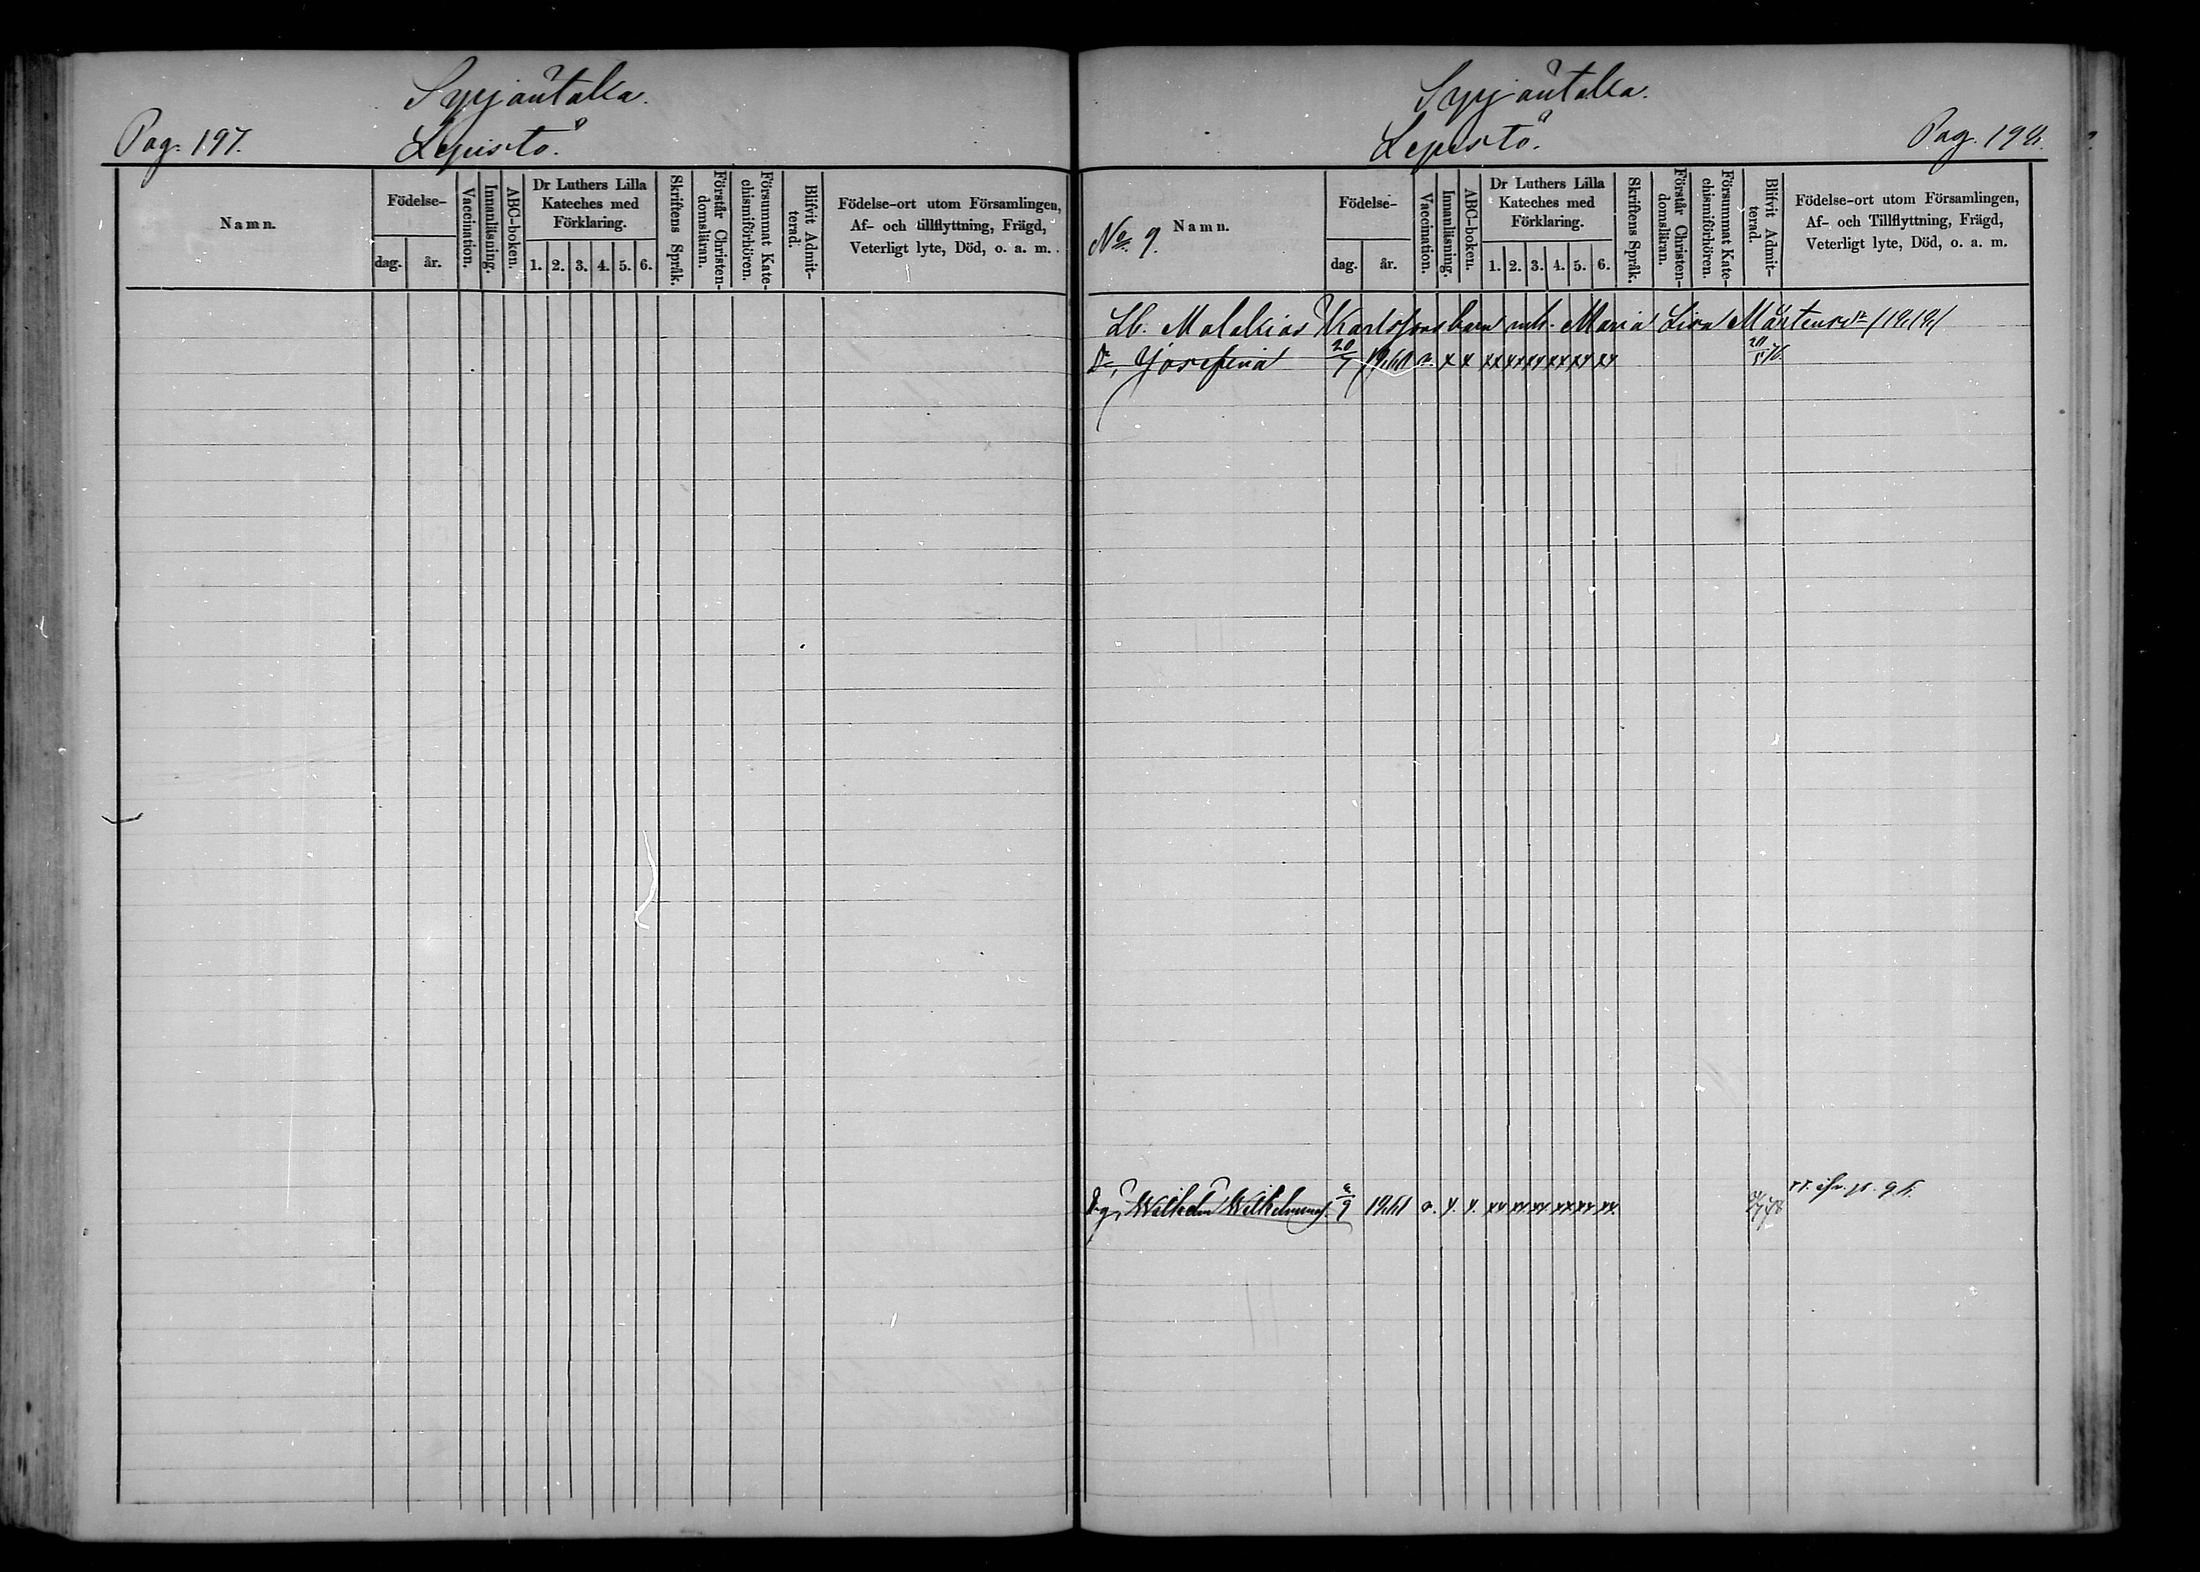 Syrjäntakka.
Pag. 197. Lepistö.
Namn.
Födelse-
dag. år.
Vaccination.
Innanläsning.
ABC-boken.
Dr Luthers Lilla
Kateches med
Förklaring.
1. 2. 3. 4. 5. 6.
Skriftens Språk.
Förstår Christen-
domsläran.
Försummat Kate-
chismiförhören.
Blifvit Admit-
terad.
Födelse-ort utom Församlingen,
Af- och tillflyttning, Frägd,
Veterligt lyte, Död, o. a. m.
Syrjäntakka.
Lepistö. Pag. 198.
No 9. Namn.
Födelse-
dag. år.
Vaccination.
Innanläsning.
ABC-boken.
Dr Luthers Lilla
Kateches med
Förklaring.
1. 2. 3. 4. 5. 6.
Skriftens Språk.
Förstår Christen-
domsläran.
Försummat Kate-
chismiförhören.
Blifvit Admit-
terad.
Födelse-ort utom Församlingen,
Af- och Tillflyttning, Frägd,
Veterligt lyte, Död, o. a. m.
Lb. Malakias Karlssons barn mh. Maria Lisa Mårtensdr
Dr, Josefina 20/7 1860 v. x x xx xx xx xx xx xx
Dg, Wilhelm Wilhelmss. 1861 v. x. x. xx xx xx xx xx xx